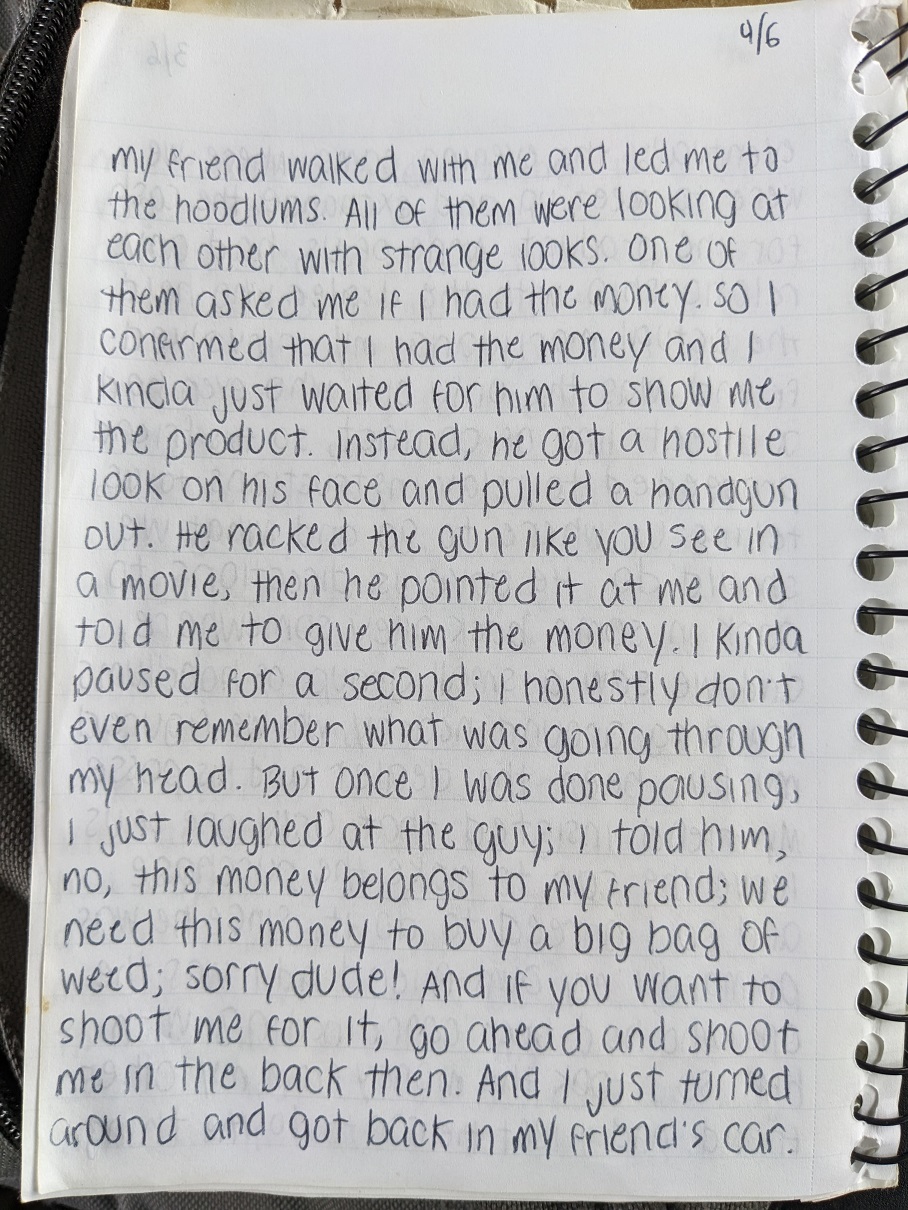 4/6
my friend walked with me and led me to
the hoodlums. All of them were looking at
each other with strange looks. One of
them asked me if I had the money. So I
confirmed that I had the money and I
kinda just waited for him to show me
the product. Instead, he got a hostile
look on his face and pulled a handgun
out. He racked the gun like you see in
a movie, then he pointed it at me and
told me to give him the money. I kinda
paused for a second; I honestly don't
even remember what was going through
my head. But once I was done pausing,
I just laughed at the guy; I told him,
no, this money belongs to my friend; we
need this money to buy a big bag of
weed; sorry dude! And if you want to
shoot me for it, go ahead and shoot
me in the back then. And I just turned
around and got back in my friend's car.